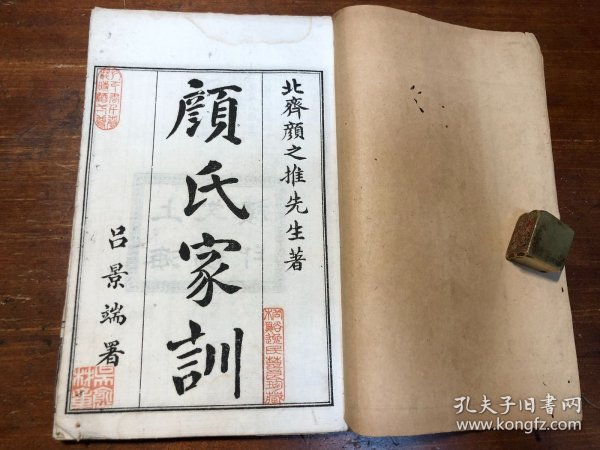 北齊顔之推先生著
顔氏家訓
呂景端署
孔夫子旧書网
www.kongfz.com